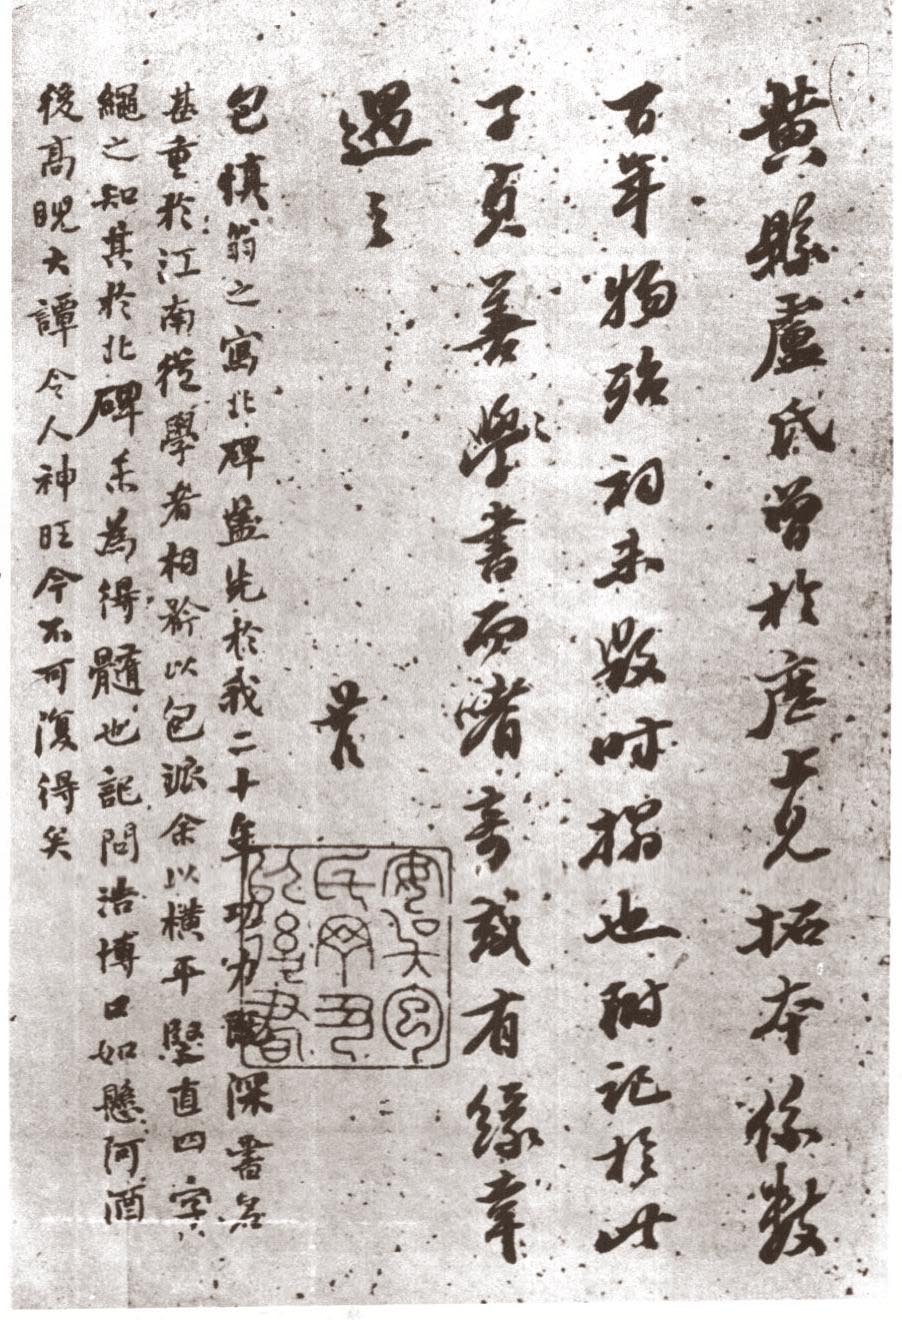 黄縣盧氏曾於上見拓本係數
百年物殆祠未毀時搨也附記於此
子貞善學書而嗜奇或有緣幸
過之
包慎翁之寫北碑蓋先於我二十年功力既深書名
甚重於江南從學者相矜以包派余以横平竪直四字
繩之知其於北碑未為得髓也記問浩博口如懸河酒
後高睨大譚令人神旺今不可復得矣